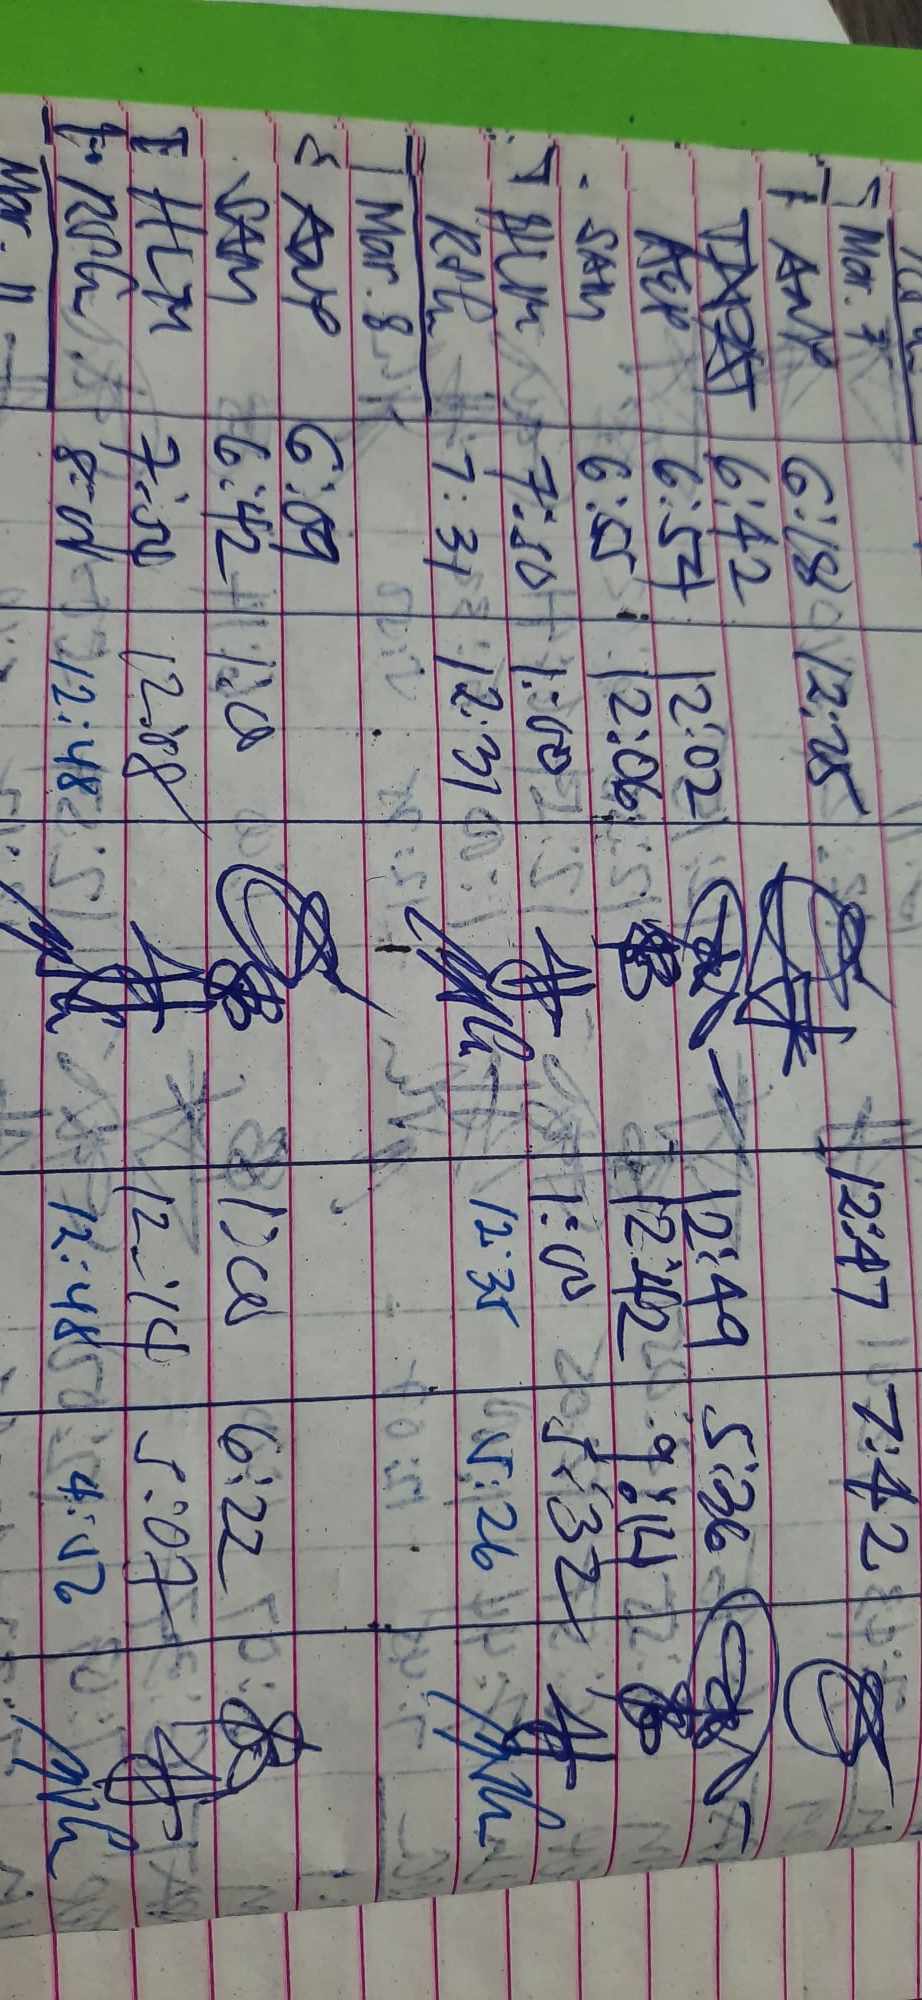 Mar. 7
ANP 6:18 12:25 12:47 7:42
6:42
AEP 6:57 12:02 12:49 5:36
SAM 6:55 12:06 12:42 9:14
HLM 7:50 1:00 1:00 5:32
RPh 7:31 12:31 12:35 5:26
Mar. 8
ANP 6:09
SAM 6:42 1:00 1:00 6:22
HLM 7:50 12:08 12:14 5:07
RPh 8:01 12:48 12:48
Mar. 11